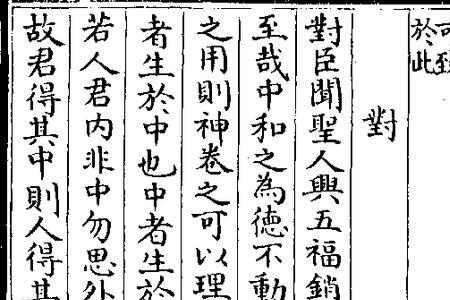 可至
於此
對
對臣聞聖人興五福銷
至哉中和之為徳不動
之用則神卷之可以理
者生於中也中者生於
若人君内非中勿思外
故君得其中則人得其